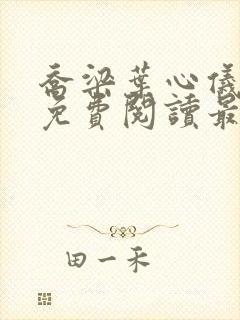 喬梁葉心儀
免費閱讀最
田一禾